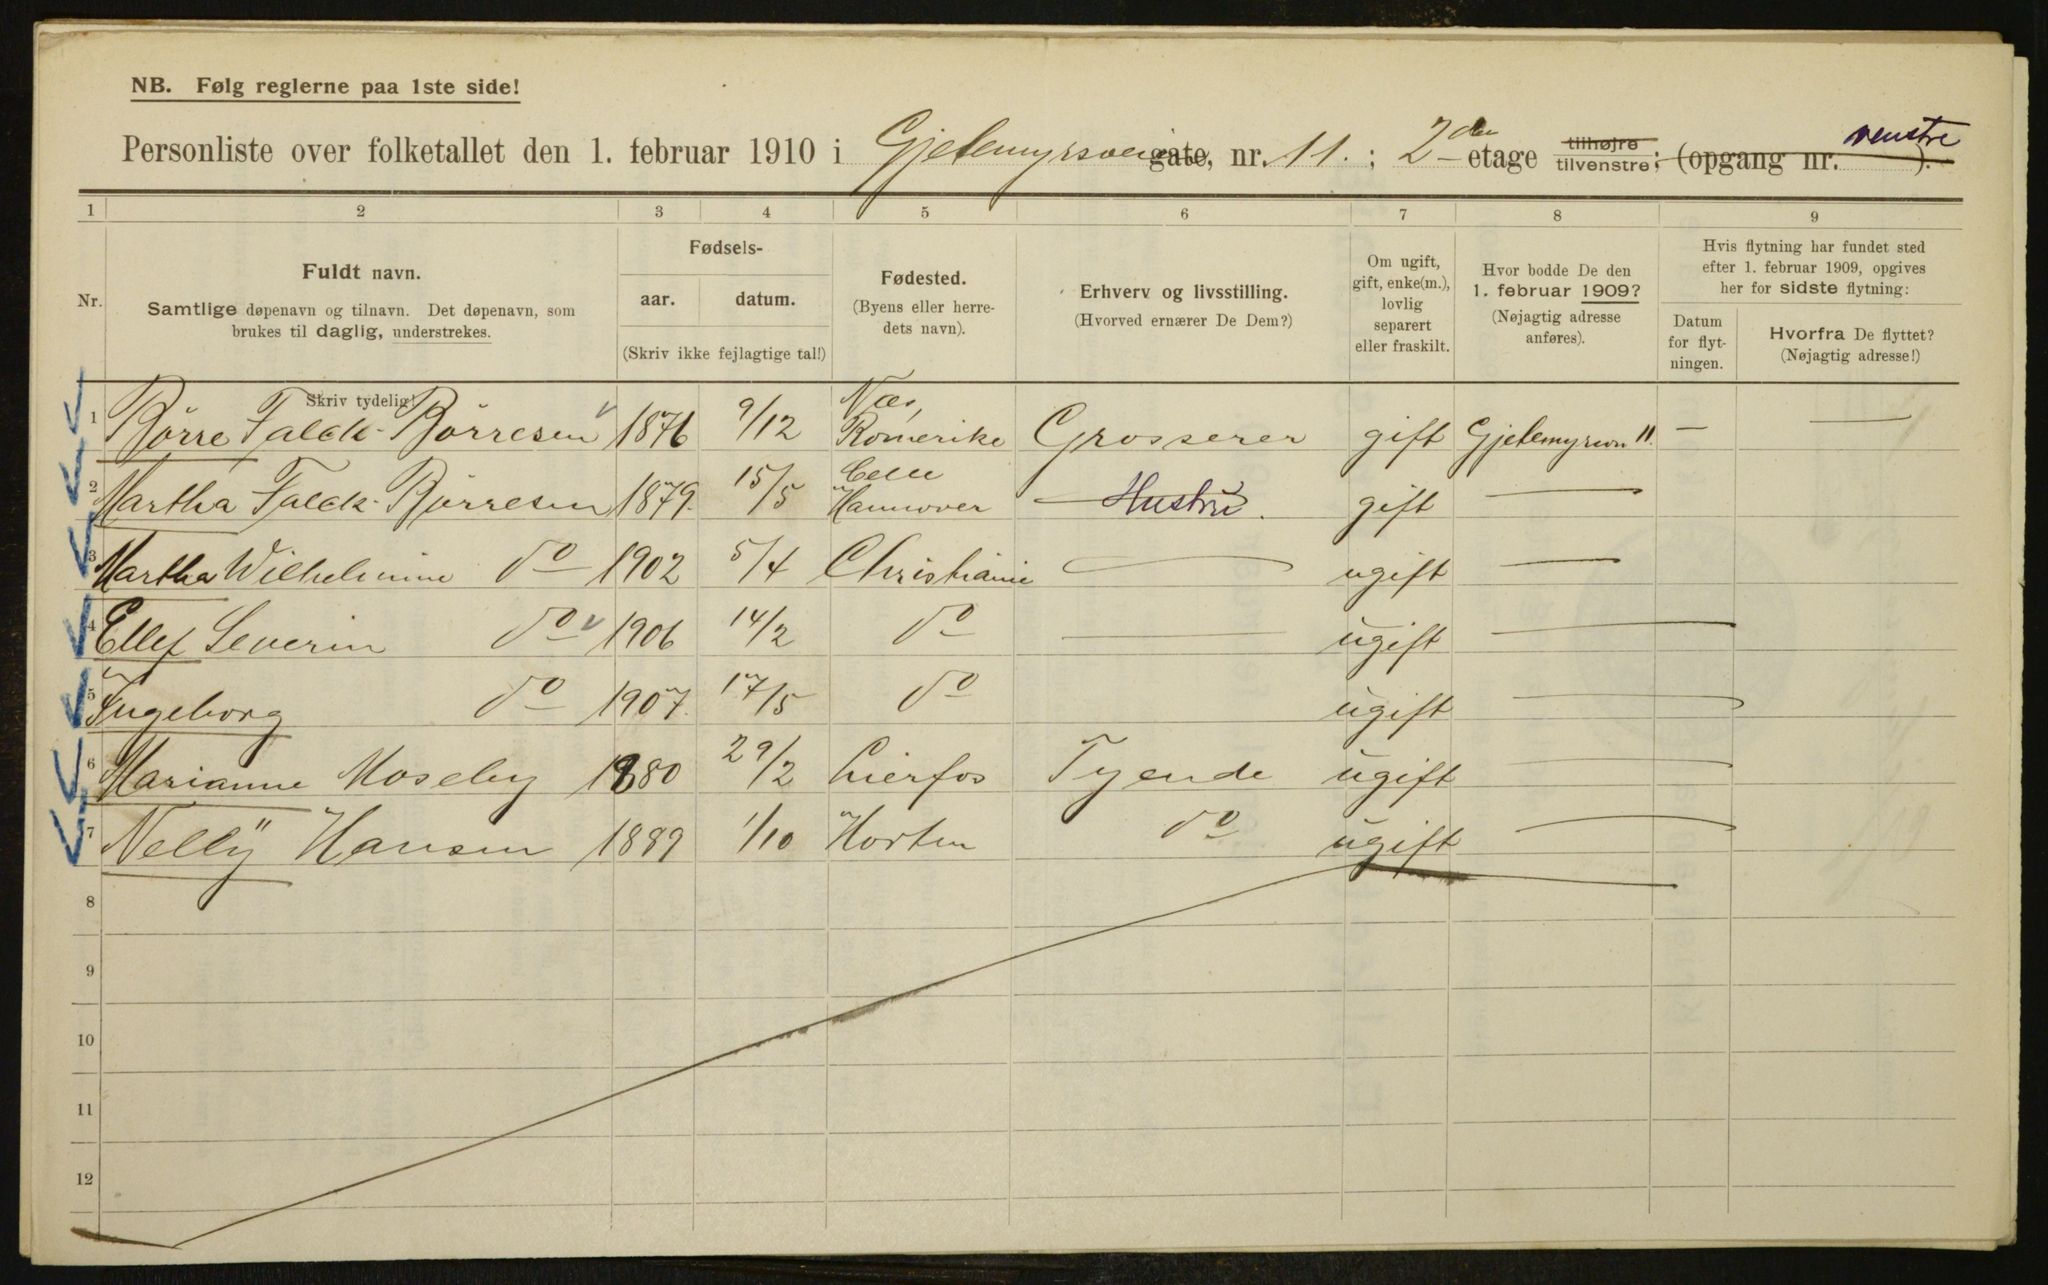 NB. Følg reglerne paa 1ste side!
Personliste over folketallet den 1. februar 1910 i Gjetemyrsvei gate, nr. 11. ; 2den etage tilhøjre tilvenstre; (opgang nr. venstre ).
1 2 3 4 5 6 7 8 9
Nr.
Fuldt navn.
Samtlige døpenavn og tilnavn. Det døpenavn, som
brukes til daglig, understrekes.
Skriv tydelig!
Fødsels-
aar. datum.
(Skriv ikke fejlagtige tal!)
Fødested.
(Byens eller herre-
dets navn).
Erhverv og livsstilling.
(Hvorved ernærer De Dem?)
Om ugift,
gift, enke(m.),
lovlig
separert
eller fraskilt.
Hvor bodde De den
1. februar 1909?
(Nøjagtig adresse
anføres).
Hvis flytning har fundet sted
efter 1. februar 1909, opgives
her for sidste flytning:
Datum
for flyt-
ningen.
Hvorfra De flyttet?
(Nøjagtig adresse!)
1 Børre Falck-Børresen 1876 9/12 Næs, Romerike Grosserer gift Gjetemyrsvn 11. — —
2 Martha Falck-Børresen 1879. 15/5 Celle Hannover Hustru. gift —
3 Martha Wilhelmine do 1902 5/4 Christiania — ugift —
4 Ellef Severin do 1906 14/2 do — ugift —
5 Ingeborg do 1907. 17/5 do ugift —
6 Marianne Moseby 1880 29/2 Lierfos Tyende ugift —
7 Nelly Hansen 1889 1/10 Horten do ugift —
8
9
10
11
12